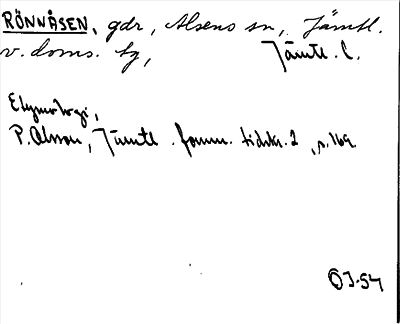 RÖNNÅSEN, gdr, Alsens sn, Jämtl.
v. doms. tg, Jämtl. l.
Etymologi,
P. Olsson, Jämtl. fornm. tidskr. 2, s. 169
OJ-54